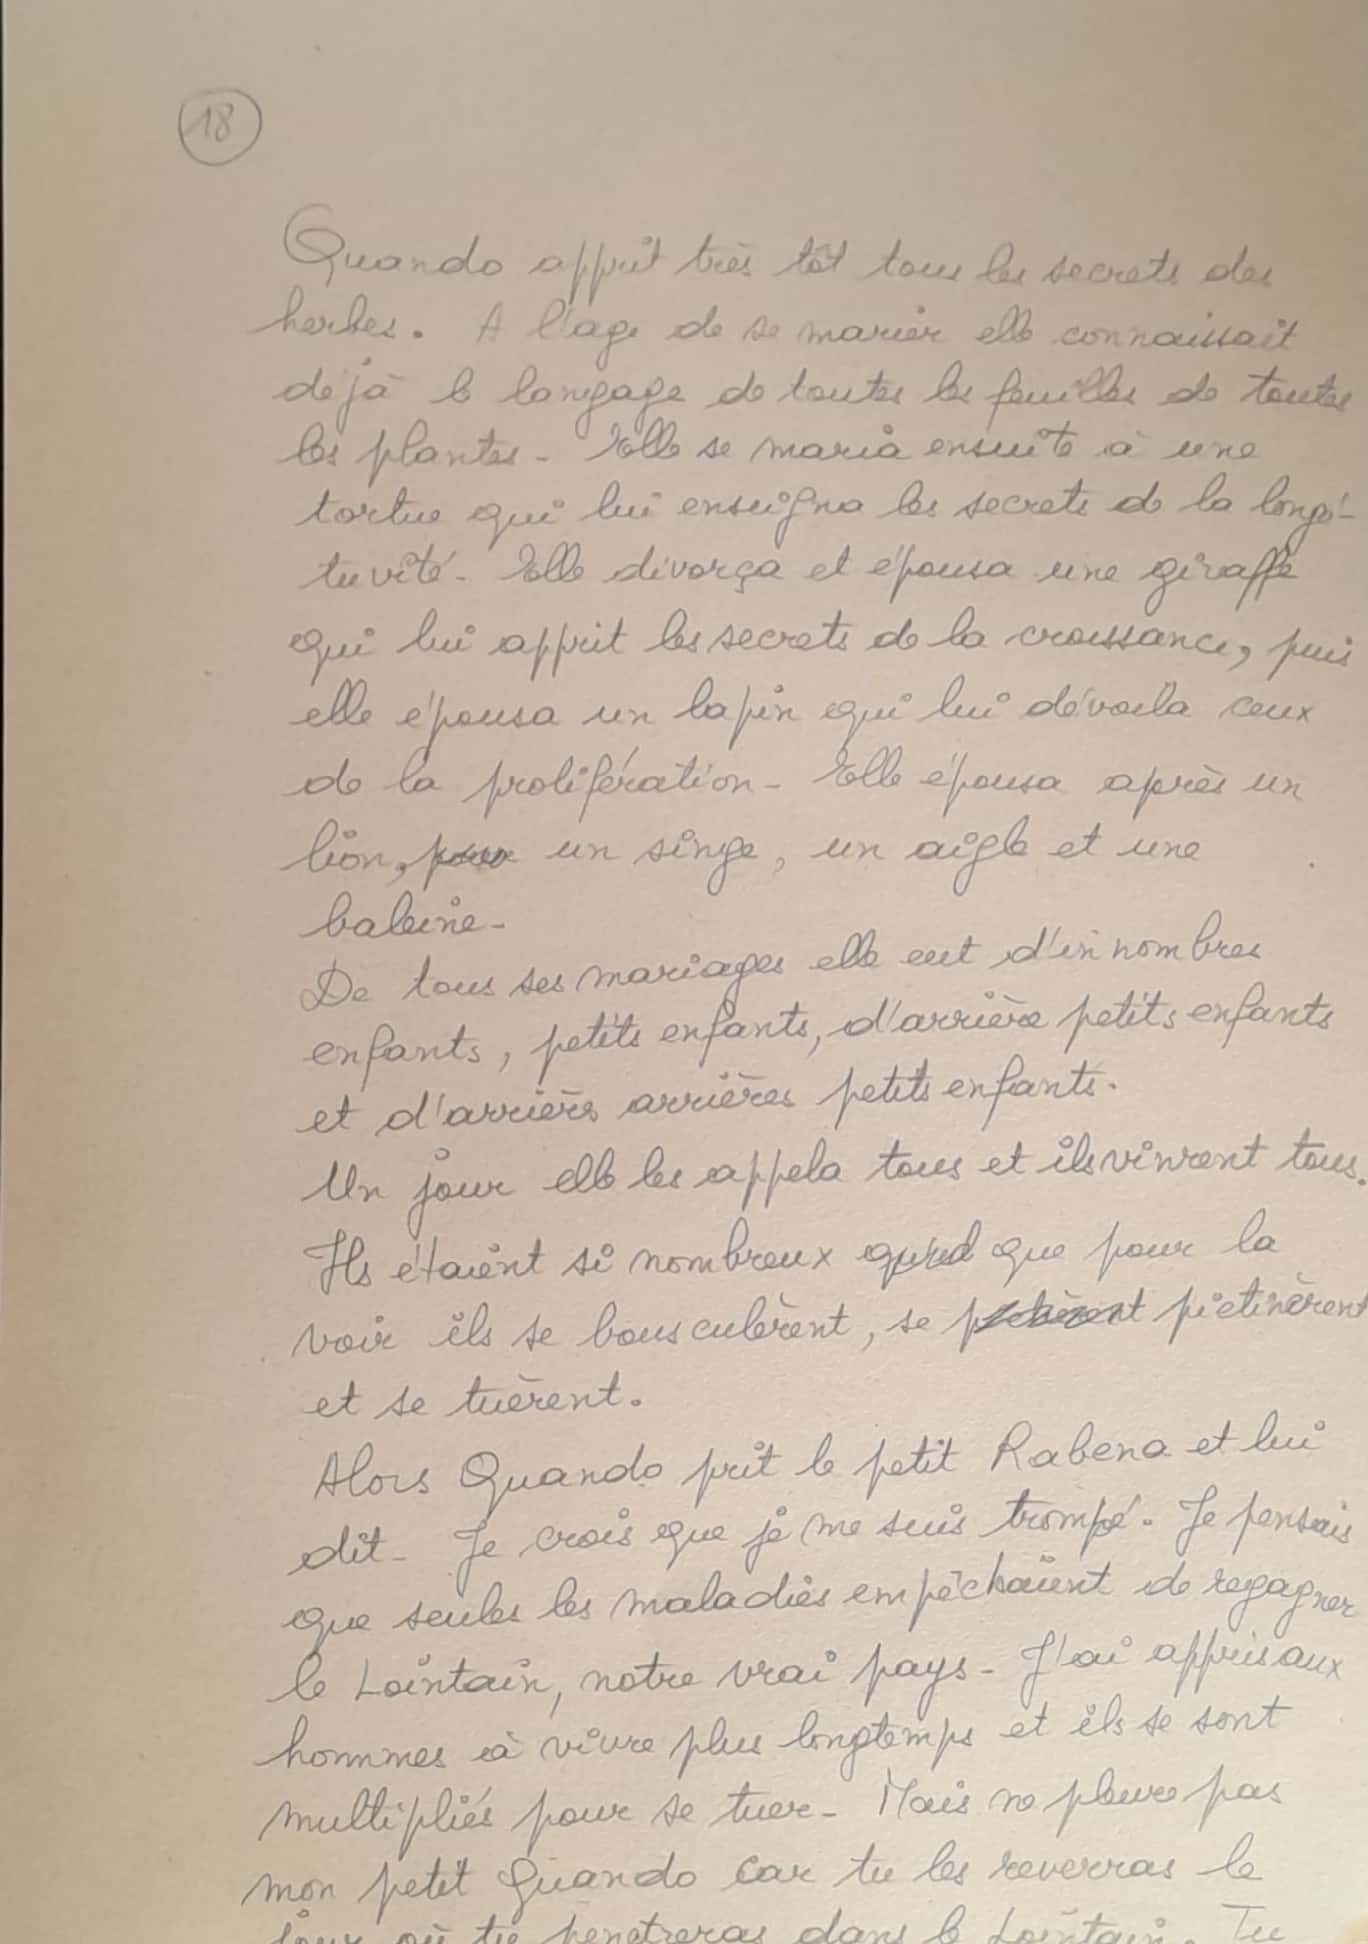 18
Quando apprit très tôt tous les secrets des
herbes. A l'age de se marier elle connaissait
déjà le langage de toutes les feuilles de toutes
les plantes - Elle se maria ensuite à une
tortue qui lui enseigna les secrets de la longé-
tuvité - Elle divorça et épousa une giraffe
qui lui apprit les secrets de la croissance, puis
elle épousa un lapin qui lui dévoila ceux
de la prolifération - Elle épousa après un
lion, un singe, un aigle et une
baleine -
De tous ses mariages elle eut d'innombres
enfants, petits enfants, d'arrière petits enfants
et d'arrières arrières petits enfants.
Un jour elle les appela tous et ils vinrent tous.
Ils étaient si nombreux que pour la
voir ils se bousculèrent, se piétinèrent
et se tuèrent.
Alors Quando prit le petit Rabena et lui
dit - Je crois que je me suis trompé - Je pensais
que seules les maladies empêchaient de regagner
le Lointain, notre vrai pays - J'ai appris aux
hommes à vivre plus longtemps et ils se sont
multipliés pour se tuer - Mais ne pleure pas
mon petit Quando car tu les reverras le
jour où tu pénetreras dans le Lointain. Tu